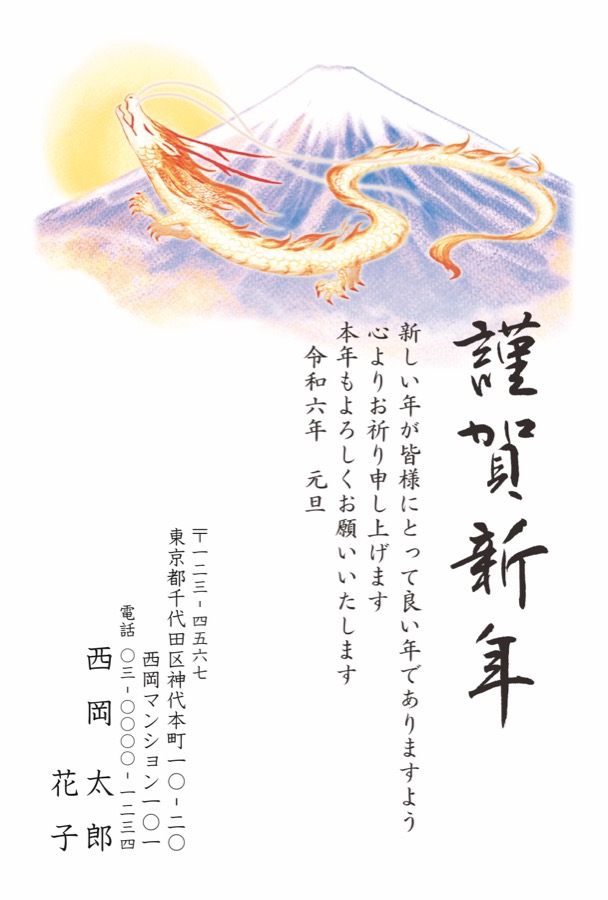 謹賀新年
新しい年が皆様にとって良い年でありますよう
心よりお祈り申し上げます
本年もよろしくお願いいたします
令和六年 元旦
〒一二三-四五六七
東京都千代田区神代本町一〇-二〇
西岡マンション一〇一
電話 〇三-〇〇〇〇-一二三四
西岡 太郎
花子